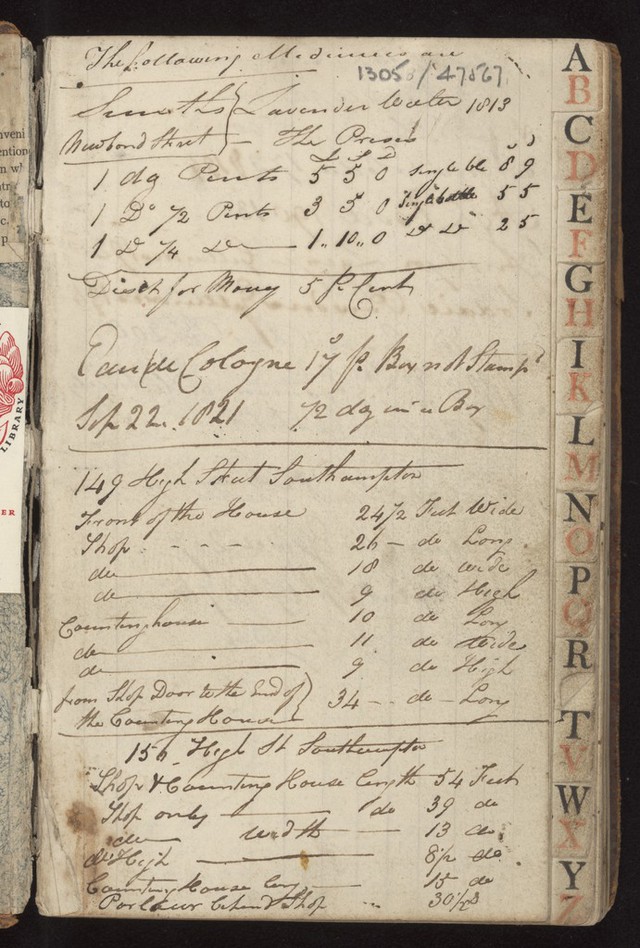 The following Medicines are
13058/47567
Smiths } Lavender Water 1813
New bond Street } — The Prices
£ S D S D
1 dz Pints 5 5 0 Single btle 8 9
1 Do 1/2 Pints 3 3 0 Single bottle 5 5
1 Do 1/4 Do — 1,,10,,0 Do Do 2 5
Disct for Money 5 pr Cent
Eau de Cologne 17s pr Box not Stampd
Sep 22 1821 1/2 dz in a Box
149 High Street Southampton
Front of the House 24 1/2 Feet Wide
Shop - - - - 26 — do Long
do — 18 do wide
do — 9 do High
Countinghouse — 10 do Long
do — 11 do Wide
do — 9 do High
from Shop Door to the End of }
the Counting House } 34 - - do — Long
156 High St Southampton
Shop & Counting House length 54 Feet
Shop only — do 39 do
do width — 13 do
do High — 8 1/2 do
Counting House long — 15 do
Parlour behind Shop ... 30 1/2
A
B
C
D
E
F
G
H
I
K
L
M
N
O
P
Q
R
T
V
W
X
Y
Z
LIBRARY